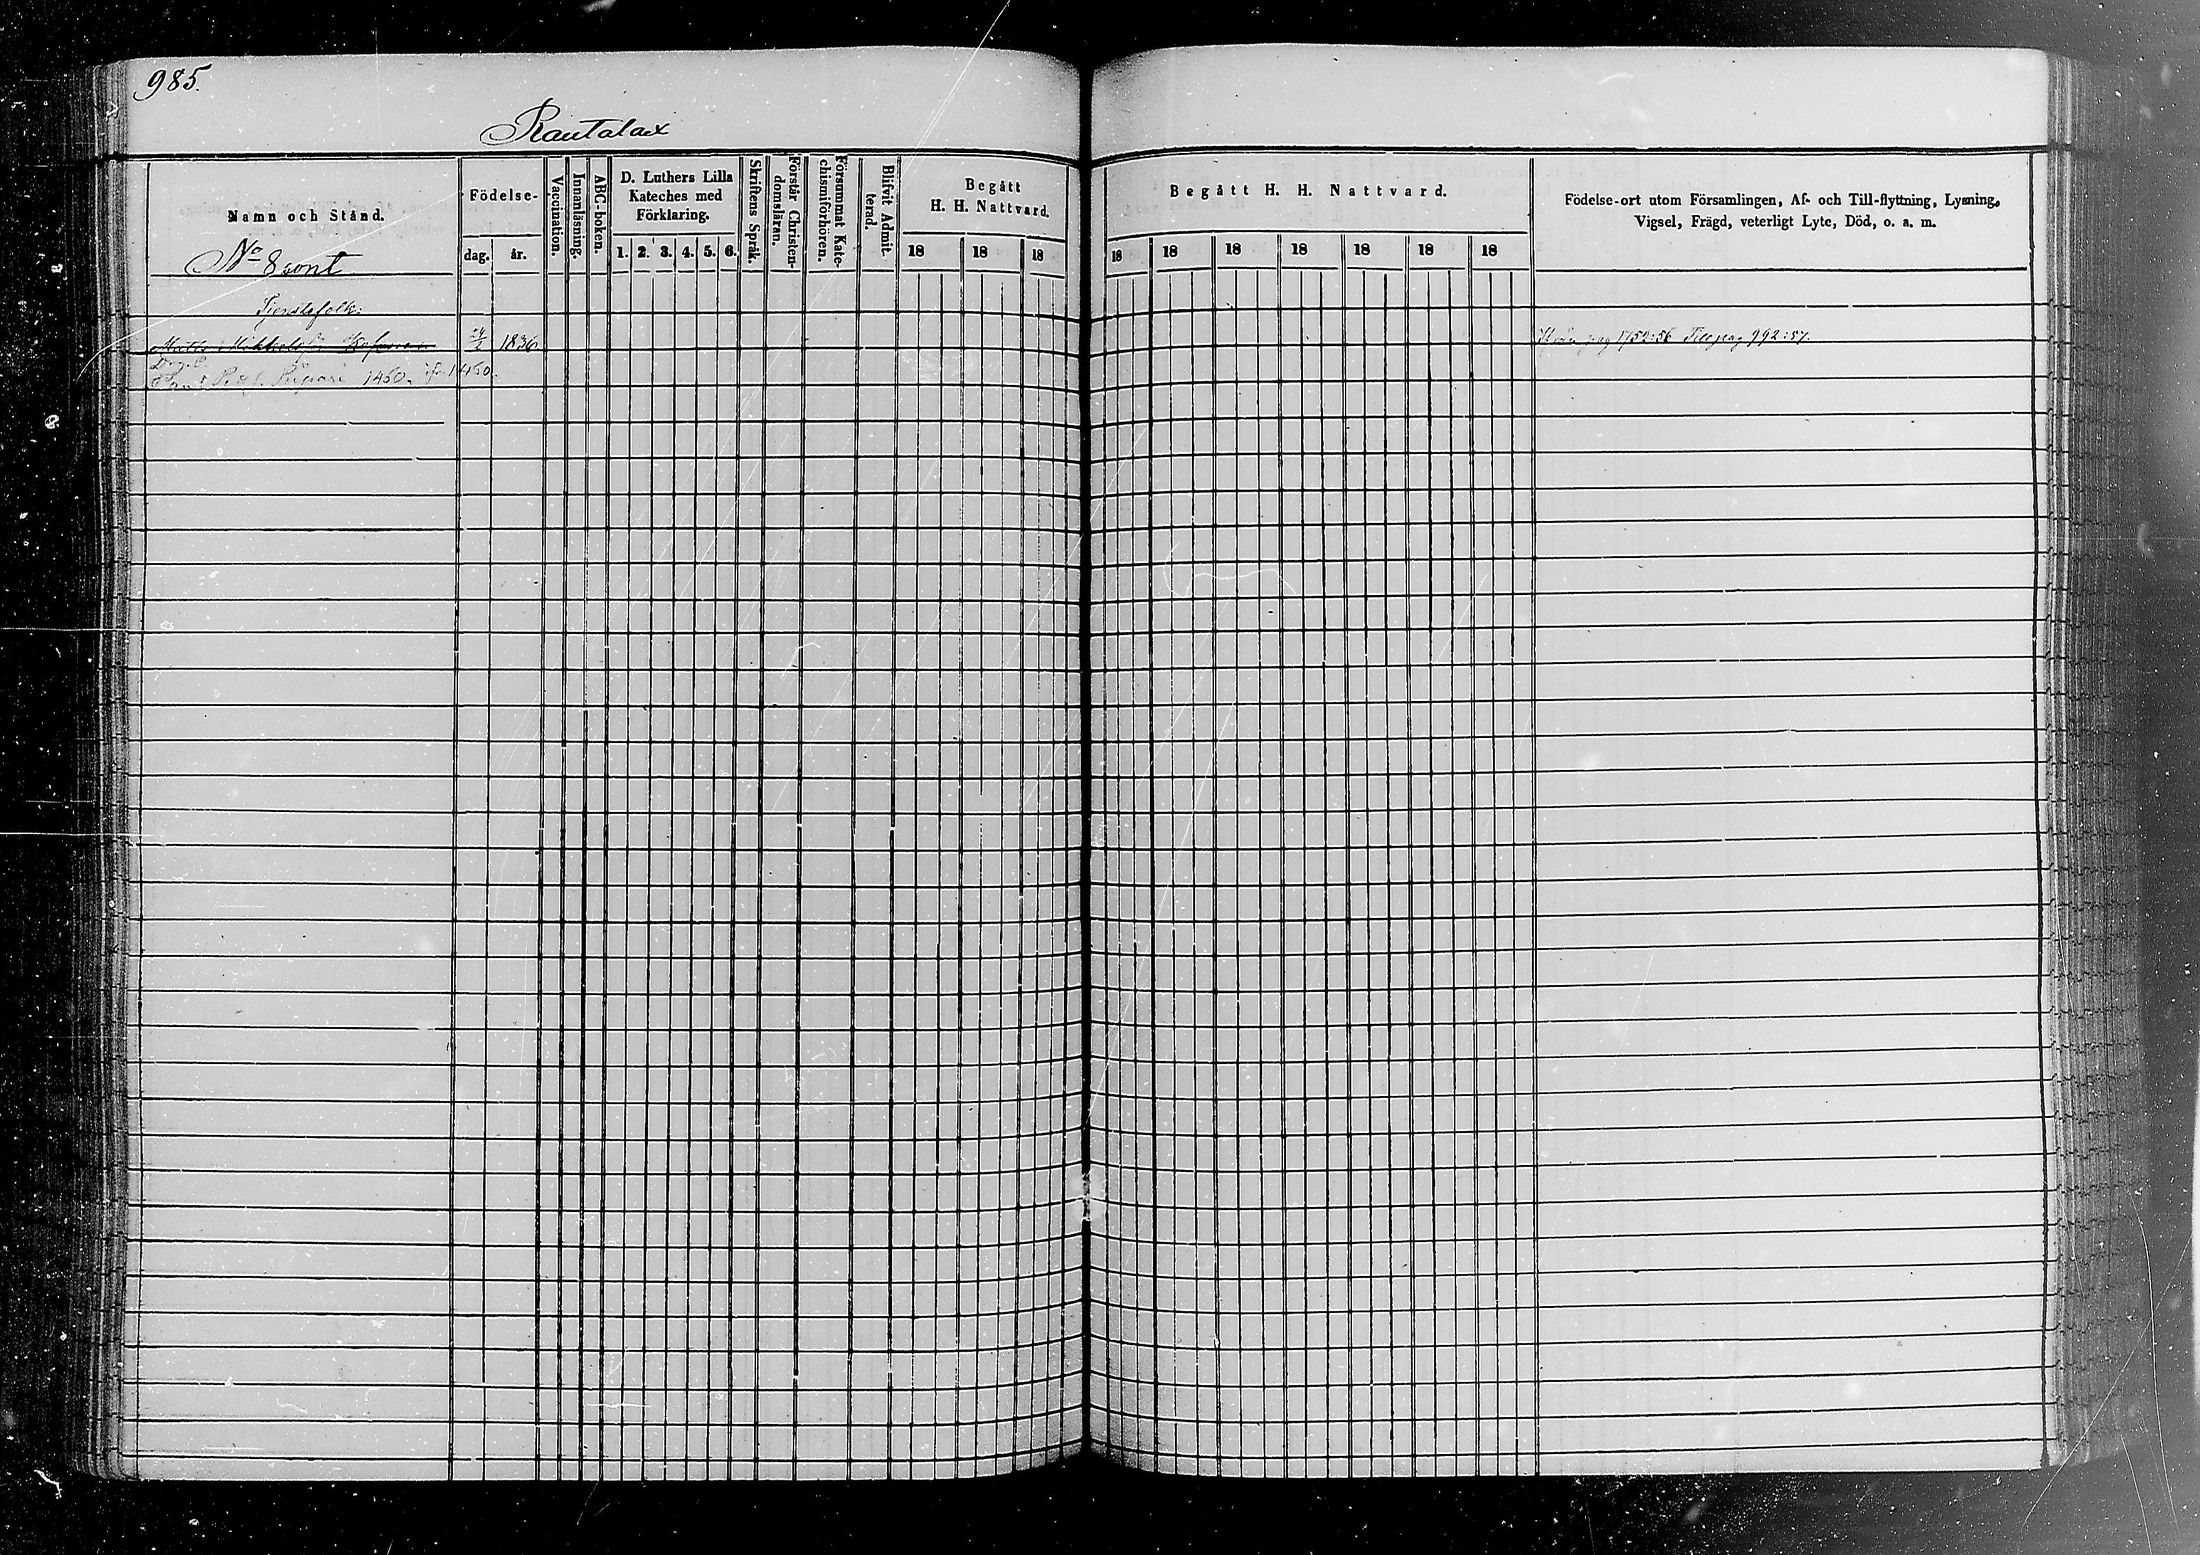 985.
Rautalax
Namn och Stånd.
No 8 cont
Födelse-
dag. år.
Vaccination.
Innanläsning.
ABC-boken.
D. Luthers Lilla
Kateches med
Förklaring.
1. 2. 3. 4. 5. 6.
Skriftens Språk.
Förstår Christen-
domsläran.
Försummat Kate-
chismiförhören.
Blifvit Admit-
terad.
Begått
H. H. Nattvard.
18 18 18
Begått H. H. Nattvard.
18 18 18 18 18 18 18
Födelse-ort utom Församlingen, Af- och Till-flyttning, Lysning,
Vigsel, Frägd, veterligt Lyte, Död, o. a. m.
Tjenstefolk:
Mikkelsson 1836 pag 1752:56 Till pag 992:57.
1460. 1460.